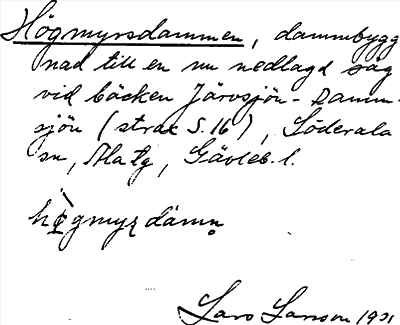 Högmyrsdammen, dammbygg
nad till en nu nedlagd såg
vid bäcken Järvsjön - Damm-
sjön (strax S. 16), Söderala
sn, Ala tg, Gävleb. l.
Lars Larsson 1931